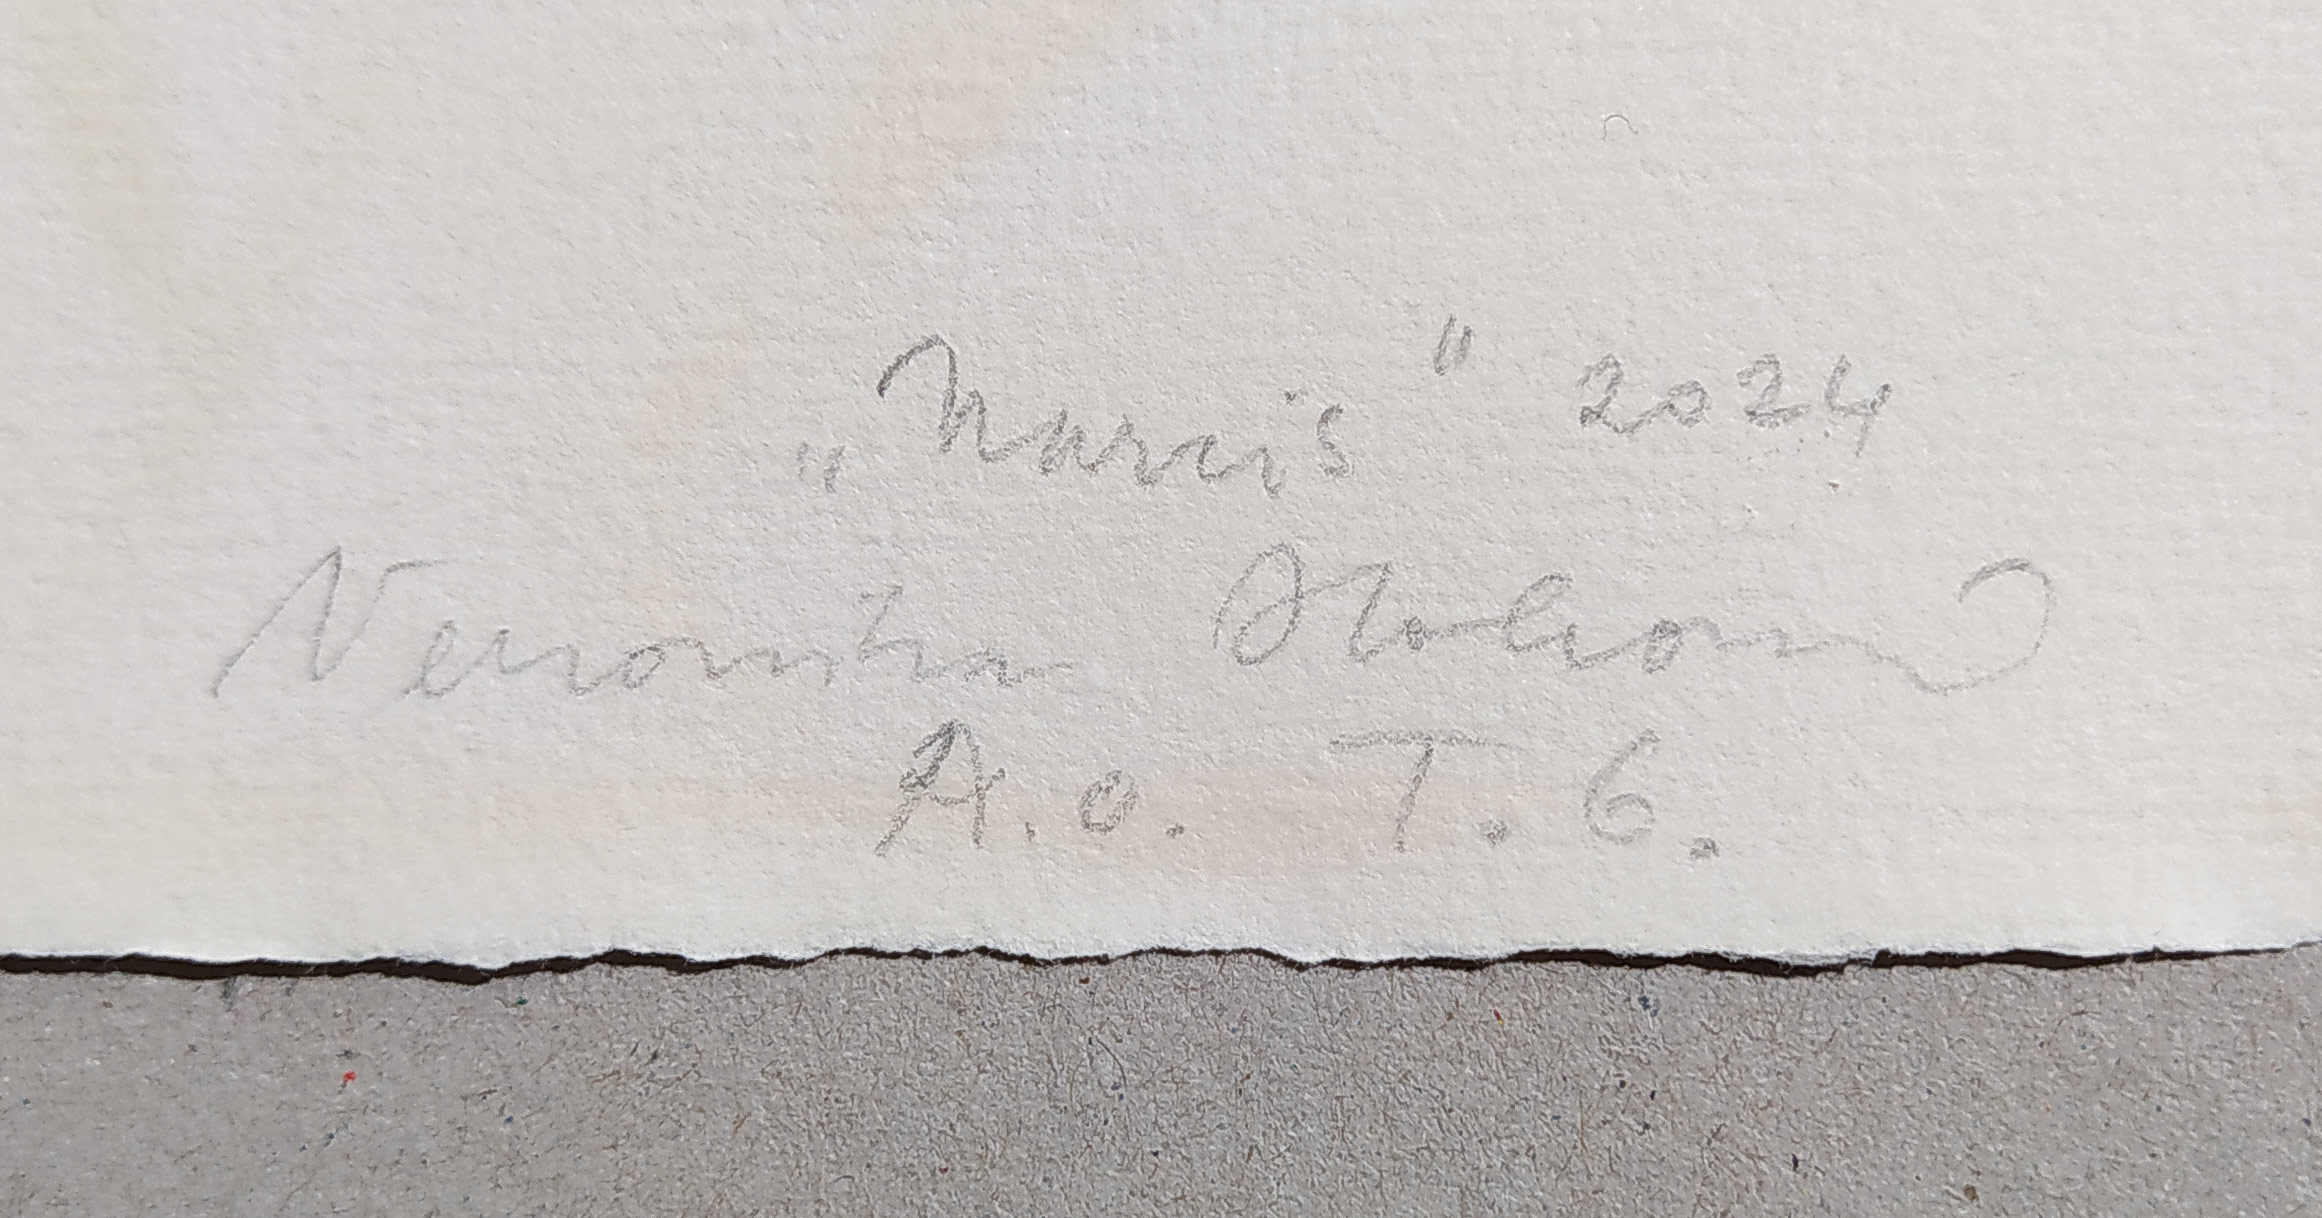 „Narcis" 2024
Veronika
A.o. T. 6.